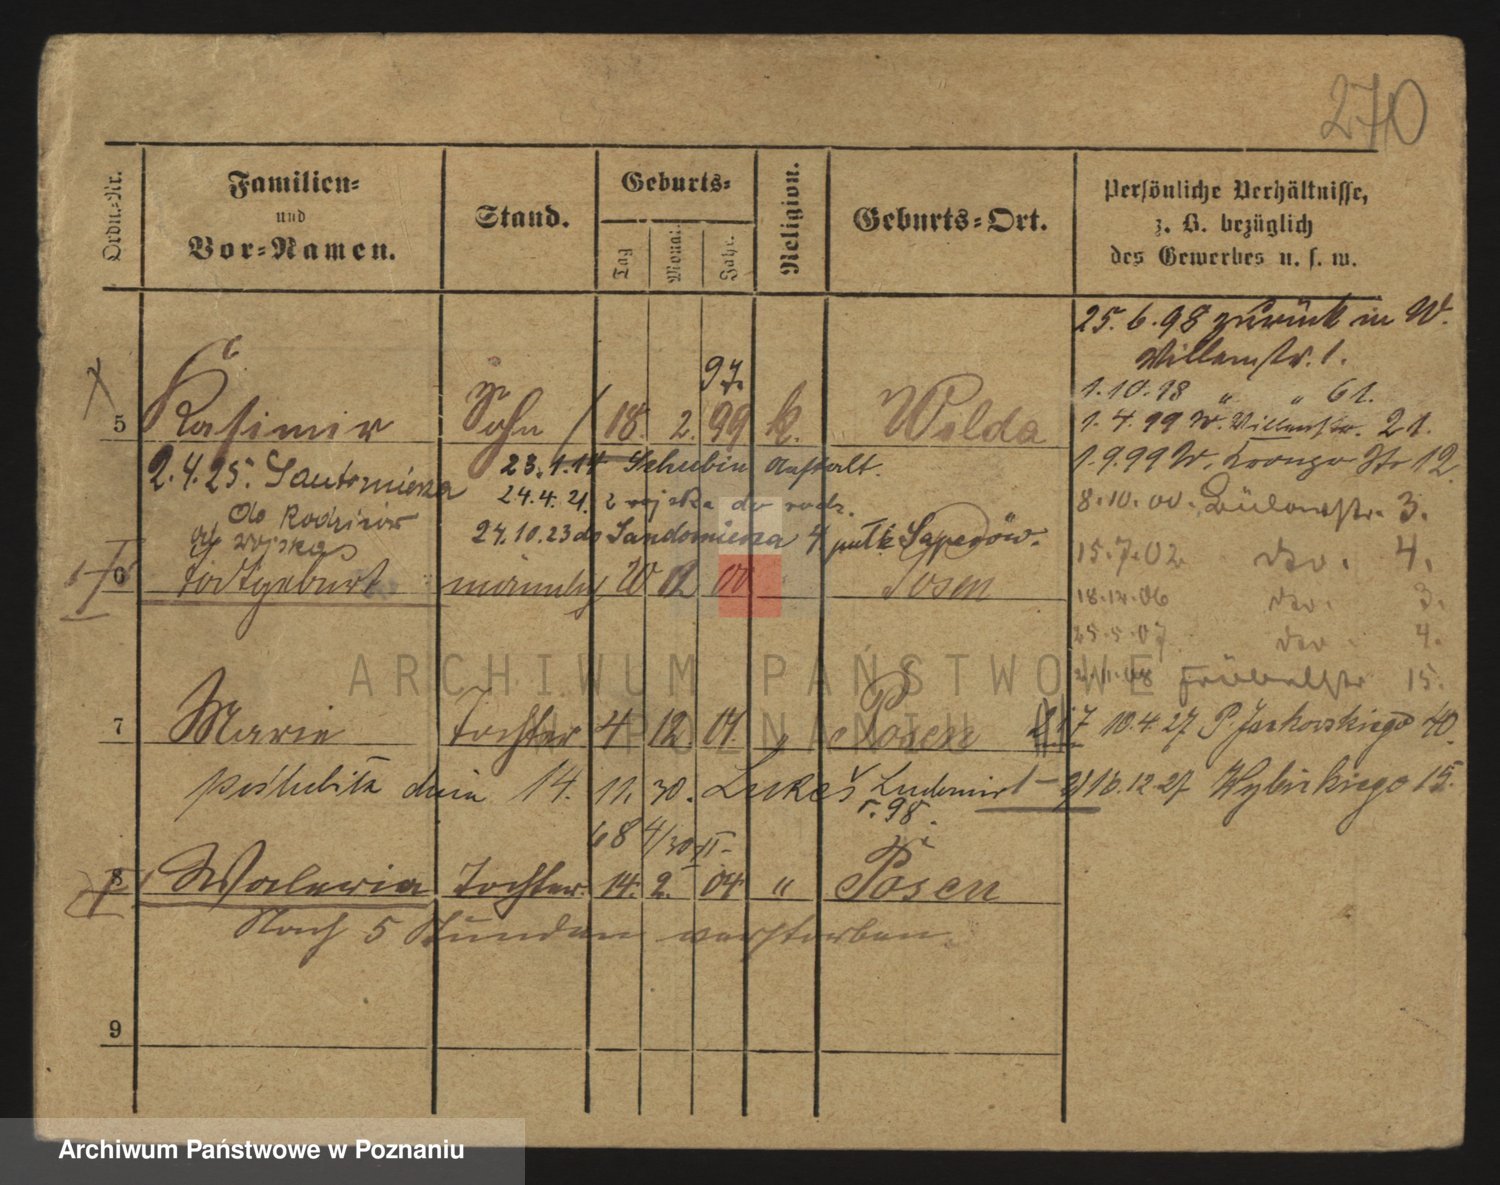 270
Ordn.-Nr.
Familien-
und
Vor-Namen.
Stand.
Geburts-
Tag
Monat
Jahr.
Religion.
Geburts-Ort.
Persönliche Verhältnisse,
z. B. bezüglich
des Gewerbes u. s. w.
25.6.98 zurück in W.
Willenstr. 1.
1.10.98 " " 61.
97.
5 Kasimir Sohn 18. 2. 99 k. Wilda
1.4.99 W. Willenstr. 21.
1.9.99 W. Str 12.
2.4.25. 23.1.14 Schubin Anstalt.
24.4.21. z wojska do rodz.
8.10.00. Bülowstr. 3.
do Rodziców
24.10.23 do Sandomierza 4 pułk Saperów.
wojska
15.7.02 do. 4.
6 Todtgeburt männlich 12 00 Posen
18.12.06 do. 3.
25.5.07 do. 4.
Fröbelstr 15.
7 Marie Tochter 4 12 01 " Posen
10.4.27 P. Jackowskiego 40.
poślubiła dnia 14. 11. 30. Lukeś Ludomir
r. 98.
10.12.27 Wybickiego 15.
8 Waleria Tochter 14. 2. 04 " Posen
Nach 5 Stunden verstorben.
9
ARCHIWUM PAŃSTWOWE
W POZNANIU
Archiwum Państwowe w Poznaniu